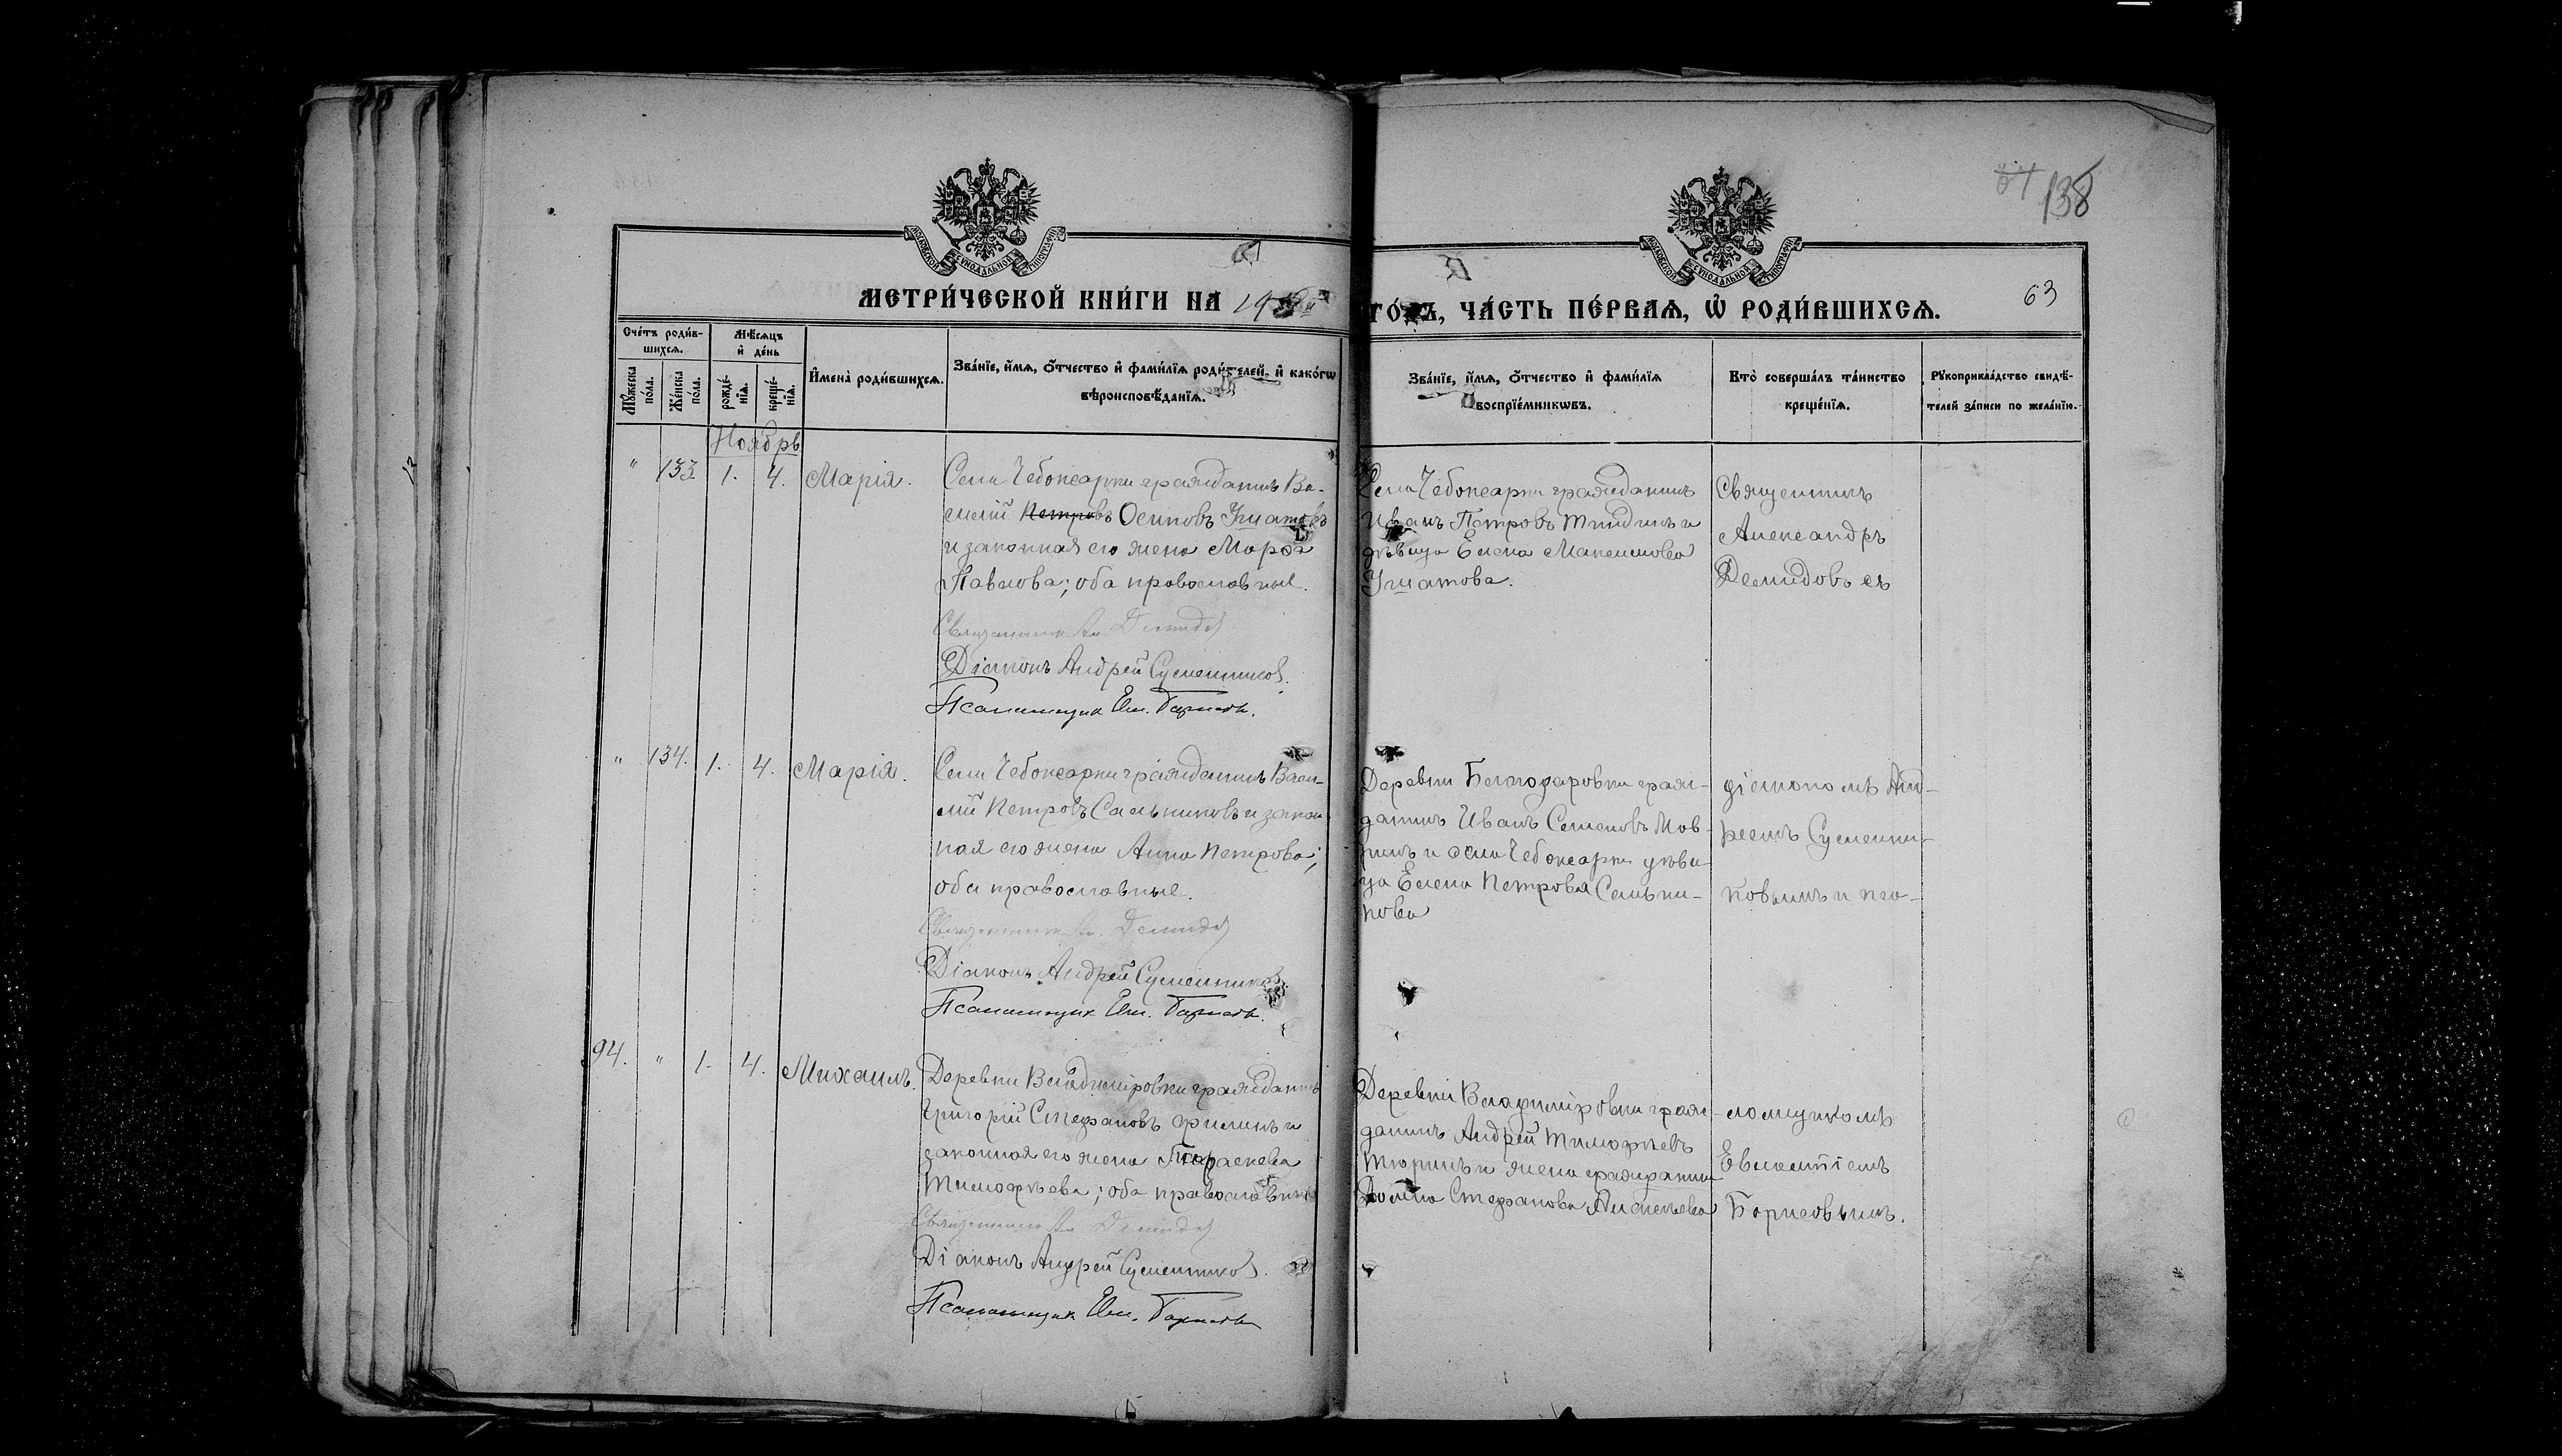 138
63
МОСКОВСКОЙ СѴНОДАЛЬНОЙ ТИПОГРАФІИ
МОСКОВСКОЙ СѴНОДАЛЬНОЙ ТИПОГРАФІИ
МЕТРИ́ЧЕСКОЙ КНИ́ГИ НА 19
ГО́ДЪ, ЧА́СТЬ ПЕ́РВАѦ, Ѡ҆ РОДИ́ВШИХСѦ.
Сче́тъ роди́в-
шихсѧ.
Мѣ́сѧцъ
и҆ де́нь
Мꙋ́жеска
по́ла.
Же́нска
по́ла.
рожде́-
нїѧ.
креще́-
нїѧ.
И҆мена̀ роди́вшихсѧ.
Зва́нїе, и҆́мѧ, ѻ҆́тчество и҆ фами́лїѧ роди́телей, и҆ како́гѡ
вѣроисповѣ́данїѧ.
Зва́нїе, и҆́мѧ, ѻ҆́тчество и҆ фами́лїѧ
воспрїе́мникѡвъ.
Кто̀ соверша́лъ та́инство
креще́нїѧ.
Рꙋкоприкла́дство свидѣ́-
телей за́писи по жела́нїю.
Ноябрь
" 133. 1. 4. Марія.
Села Чебоксарки гражданинъ Ва-
силій Петровъ Осиповъ Ушатовъ
и законная его жена Марѳа
Павлова; оба православные.
Священникъ Ал. Демидов
Діаконъ Андрей Сумешников.
Псаломщик Евл. Борисов.
Села Чебоксарки гражданинъ
Иванъ Петровъ Тиндинъ и
дѣвица Елена Максимова
Ушатова.
Священникъ
Александръ
Демидовъ съ
" 134. 1. 4. Марія.
Села Чебоксарки гражданинъ Васи-
лій Петровъ Сальниковъ и закон-
ная его жена Анна Петрова;
оба православные.
Священникъ Ал. Демидов
Діаконъ Андрей Сумешников.
Псаломщик Евл. Борисов.
Деревни Благодаровки граж-
данинъ Иванъ Семеновъ Мов-
кинъ и села Чебоксарки дѣви-
ца Елена Петрова Сальни-
кова
діакономъ Анд-
реемъ Сумешни-
ковымъ и пса-
94. " 1. 4. Михаилъ.
Деревни Владиміровки гражданинъ
Григорій Стефановъ Филинъ и
законная его жена Параскева
Тимофѣева; оба православные
Священникъ Ал. Демидов
Діаконъ Андрей Сумешников.
Псаломщик Евл. Борисов
Деревни Владиміровки граж-
данинъ Андрей Тимофѣевъ
Тюринъ и жена гражданина
Стефанова
ломщикомъ
Евлампіемъ
Борисовымъ.